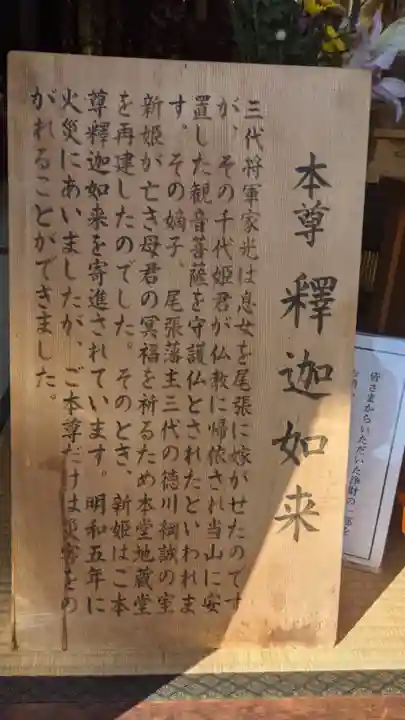 本尊 釋迦如来
三代将軍家光は息女を尾張に嫁がせたのです
が、その千代姫君が仏教に帰依され当山に安
置した観音菩薩を守護仏とされたといわれま
す。その嫡子、尾張藩主三代の徳川綱誠の室
新姫が亡き母君の冥福を祈るため本堂地蔵堂
を再建したのでした。そのとき、新姫はご本
尊釋迦如来を寄進されています。明和五年に
火災にあいましたが、ご本尊だけは災害をの
がれることができました。
皆さまからいただいた浄財の一部を